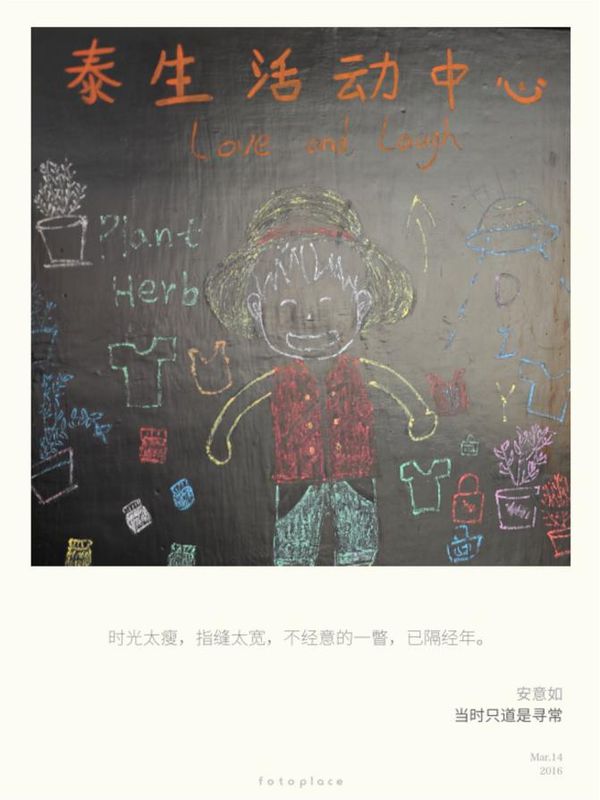 泰生活动中心
Love and Laugh
Plant
Herb
D
I
Y
时光太瘦，指缝太宽，不经意的一瞥，已隔经年。
安意如
当时只道是寻常
Mar.14
2016
fotoplace